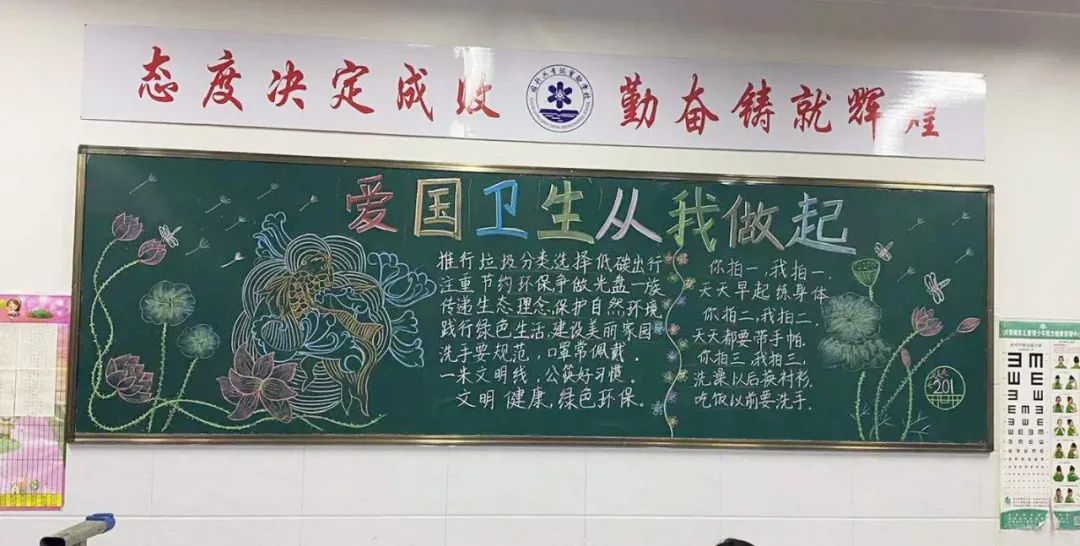 态度决定成败
勤奋铸就辉煌
爱国卫生从我做起
推行垃圾分类选择低碳出行
注重节约环保争做光盘一族
传递生态理念,保护自然环境
践行绿色生活,建设美丽家园
洗手要规范,口罩常佩戴。
一米文明线,公筷好习惯。
文明健康,绿色环保。
你拍一,我拍一.
天天早起练身体
你拍二,我拍二.
天天都要带手帕.
你拍三,我拍三.
洗澡以后换衬衫.
吃饭以前要洗手.
201